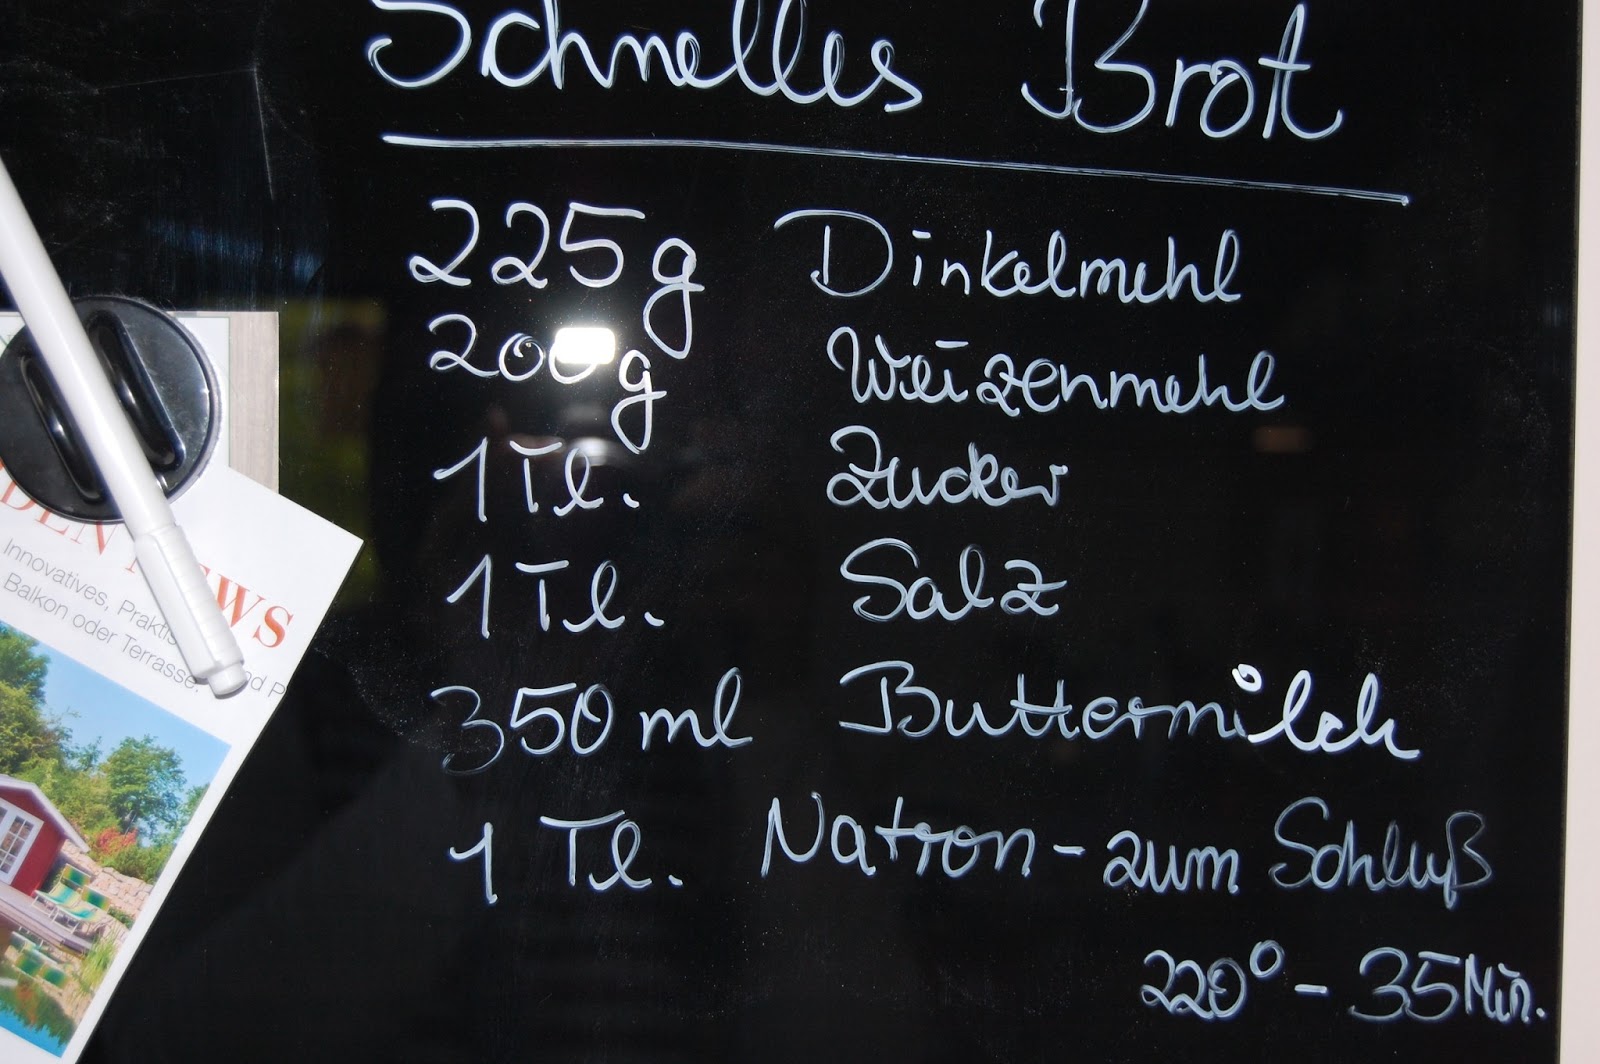 Schnelles Brot
225g Dinkelmehl
200g Weizenmehl
1 Tl. Zucker
1 Tl. Salz
350 ml Buttermilch
1 Tl. Natron - zum Schluß
220° - 35 Min.
DEN NEWS
Innovatives, Prakti
Balkon oder Terrasse.